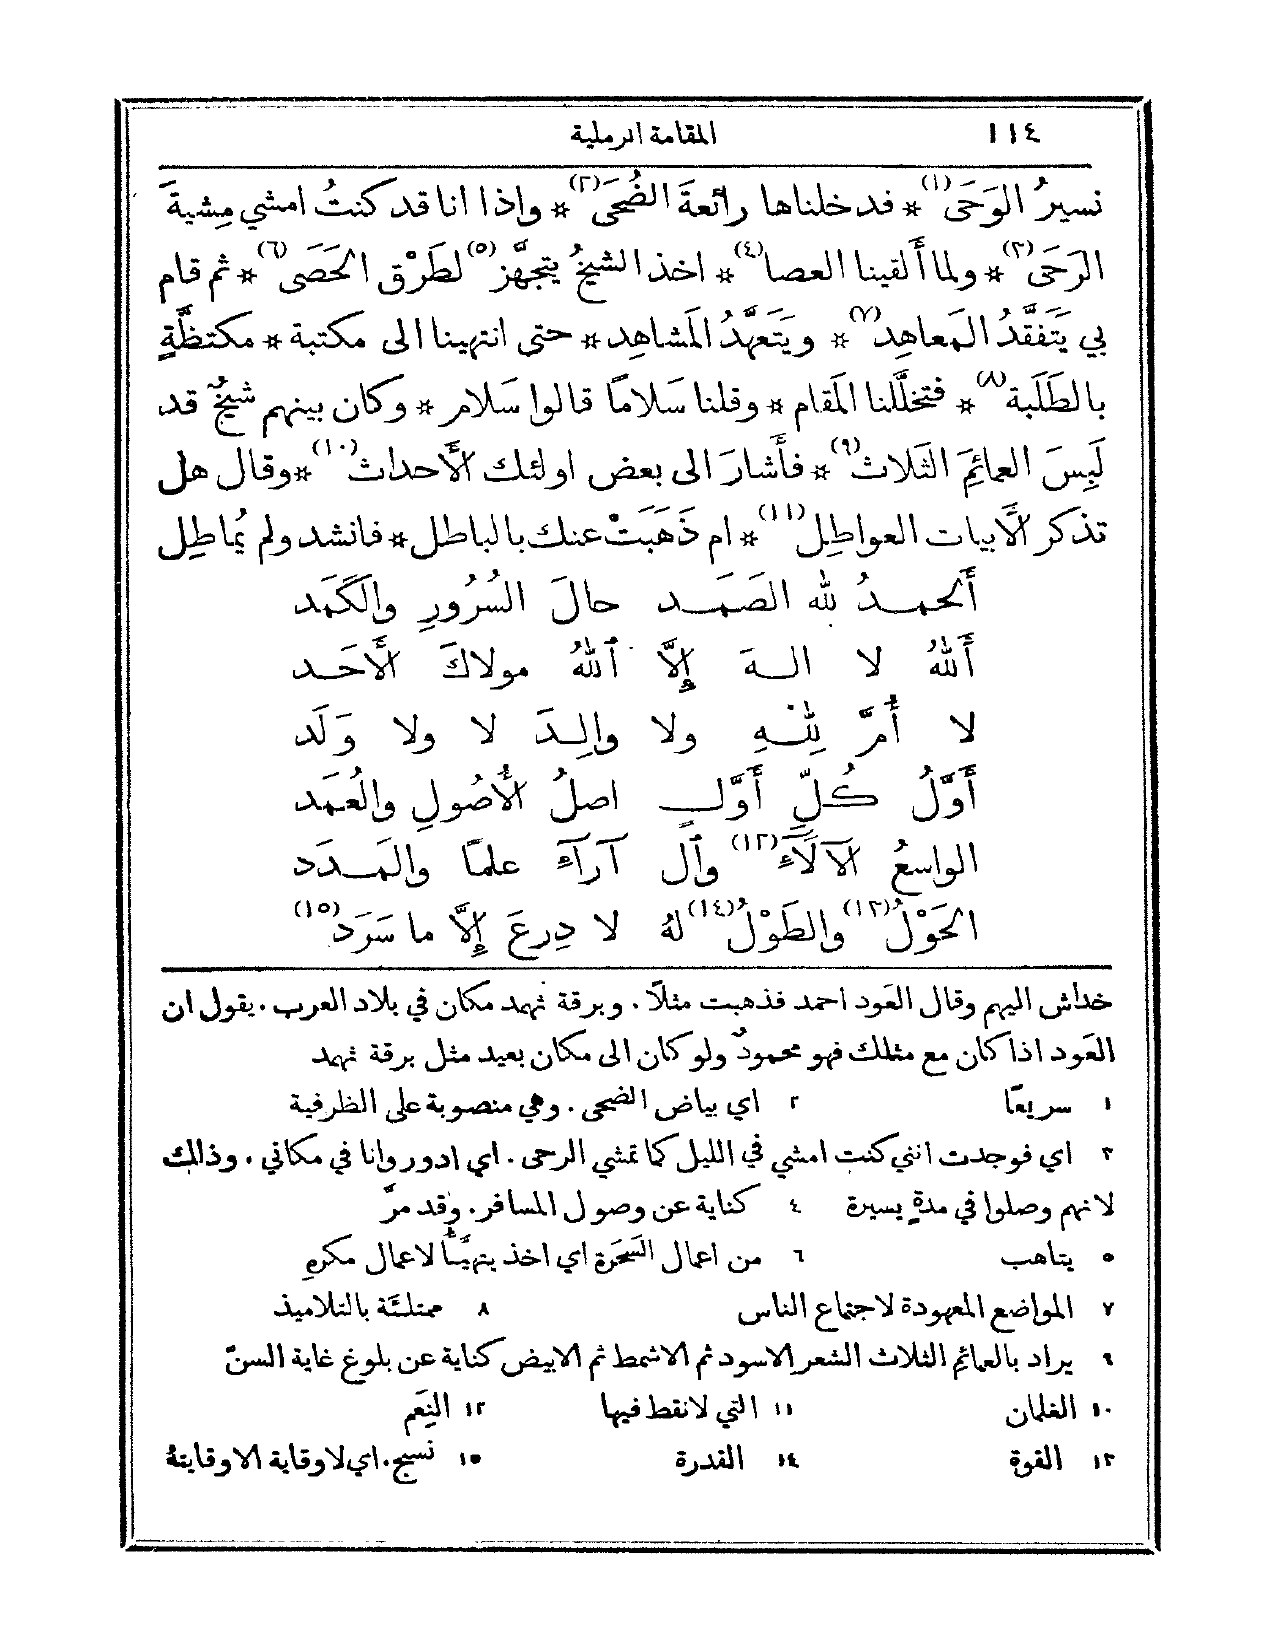 ١١٤ المقامة الرملية
نسيرُ الوَحَى(١) * فدخلناها رائعةَ الضُحَى(٢) * واذا انا قد كنتُ امشي مِشيةَ
الرَحَى(٣) * ولما أَلقينا العصا(٤) * اخذ الشيخُ يتجهَّز(٥) لطَرْق الحَصَى(٦) * ثم قام
بي يَتَفقَّدُ المَعاهِد(٧) * ويَتَعهَّدُ المَشاهِد * حتى انتهينا الى مكتبة * مكتظَّةٍ
بالطَلَبة(٨) * فتخلَّلنا المَقام * وقلنا سَلامًا قالوا سَلام * وكان بينهم شيخٌ قد
لَبِسَ العمائِمَ الثَلاث(٩) * فأَشارَ الى بعض اولئك الأَحداث(١٠) * وقال هل
تذكر الأَبيات العواطِل(١١) * ام ذَهَبَتْ عنك بالباطل * فانشد ولم يُماطِل
أَلحمدُ للهِ الصَمَد حالَ السُرُورِ والكَمَد
أَللهُ لا الهَ إِلاَّ اللهُ مولاكَ الأَحَد
لا أُمَّ لِلّٰهِ ولا والِدَ لا ولا وَلَد
أَوَّلُ كُلِّ أَوَّلٍ اصلُ الأُصُولِ والعُمَد
الواسعُ الآلاَءِ(١٢) وٱل آرآءِ علمًا والمَدَد
الحَوْلُ(١٣) والطَوْلُ(١٤) لهُ لا دِرعَ إِلاَّ ما سَرَد(١٥)
خداش اليهم وقال العَود احمد فذهبت مثلًا . وبرقة ثهمد مكان في بلاد العرب . يقول ان
العَود اذا كان مع مثلك فهو محمودٌ ولو كان الى مكان بعيد مثل برقة ثهمد
١ سريعًا ٢ اي بياض الضحى . وهي منصوبة على الظرفية
٣ اي فوجدت انني كنت امشي في الليل كما تمشي الرحى . اي ادور وانا في مكاني ، وذلك
لانهم وصلوا في مدةٍ يسيرة ٤ كناية عن وصول المسافر . وقد مرَّ
٥ يتاهب ٦ من اعمال السَحَرة اي اخذ يتهيَّأُ لاعمال مكرهِ
٧ المواضع المعهودة لاجتماع الناس ٨ ممتلئَة بالتلاميذ
٩ يراد بالعمائم الثلاث الشعر الاسود ثم الاشمط ثم الابيض كناية عن بلوغ غاية السنّ
١٠ الغلمان ١١ التي لا نقط فيها ١٢ النِعَم
١٣ القوة ١٤ القدرة ١٥ نسج . اي لا وقاية الا وقايتهُ